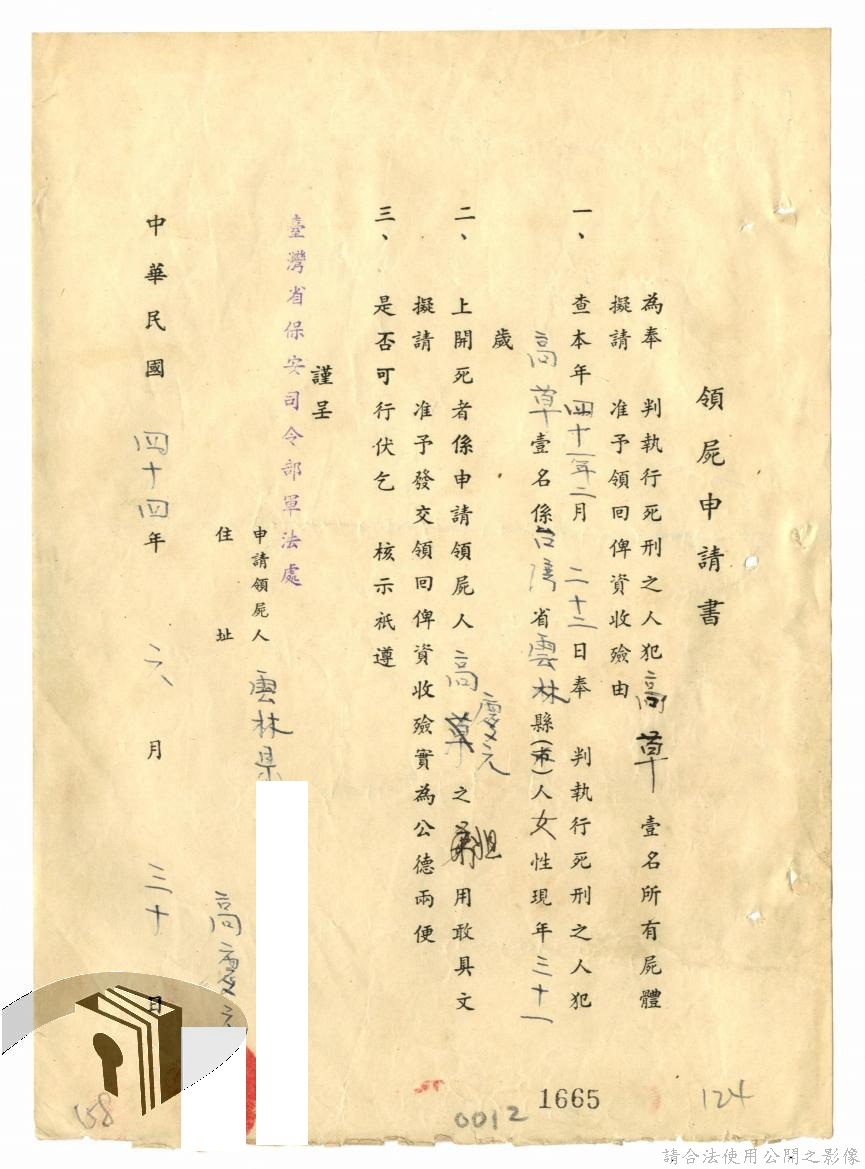 領屍申請書
為奉 判執行死刑之人犯高草壹名所有屍體
擬請 准予領回俾資收殮由
一、查本年四十一年二月 二十二日奉 判執行死刑之人犯
高草壹名係台湾省雲林縣(市)人女性現年三十一
歲
二、上開死者係申請領屍人高慶元之姐用敢具文
擬請 准予發交領回俾資收殮實為公德兩便
三、是否可行伏乞 核示祇遵
謹呈
臺灣省保安司令部軍法處
申請領屍人
住址
雲林県
高慶元
中華民國 四十四年 六月 三十日
1665
0012
124
158
請合法使用公開之影像